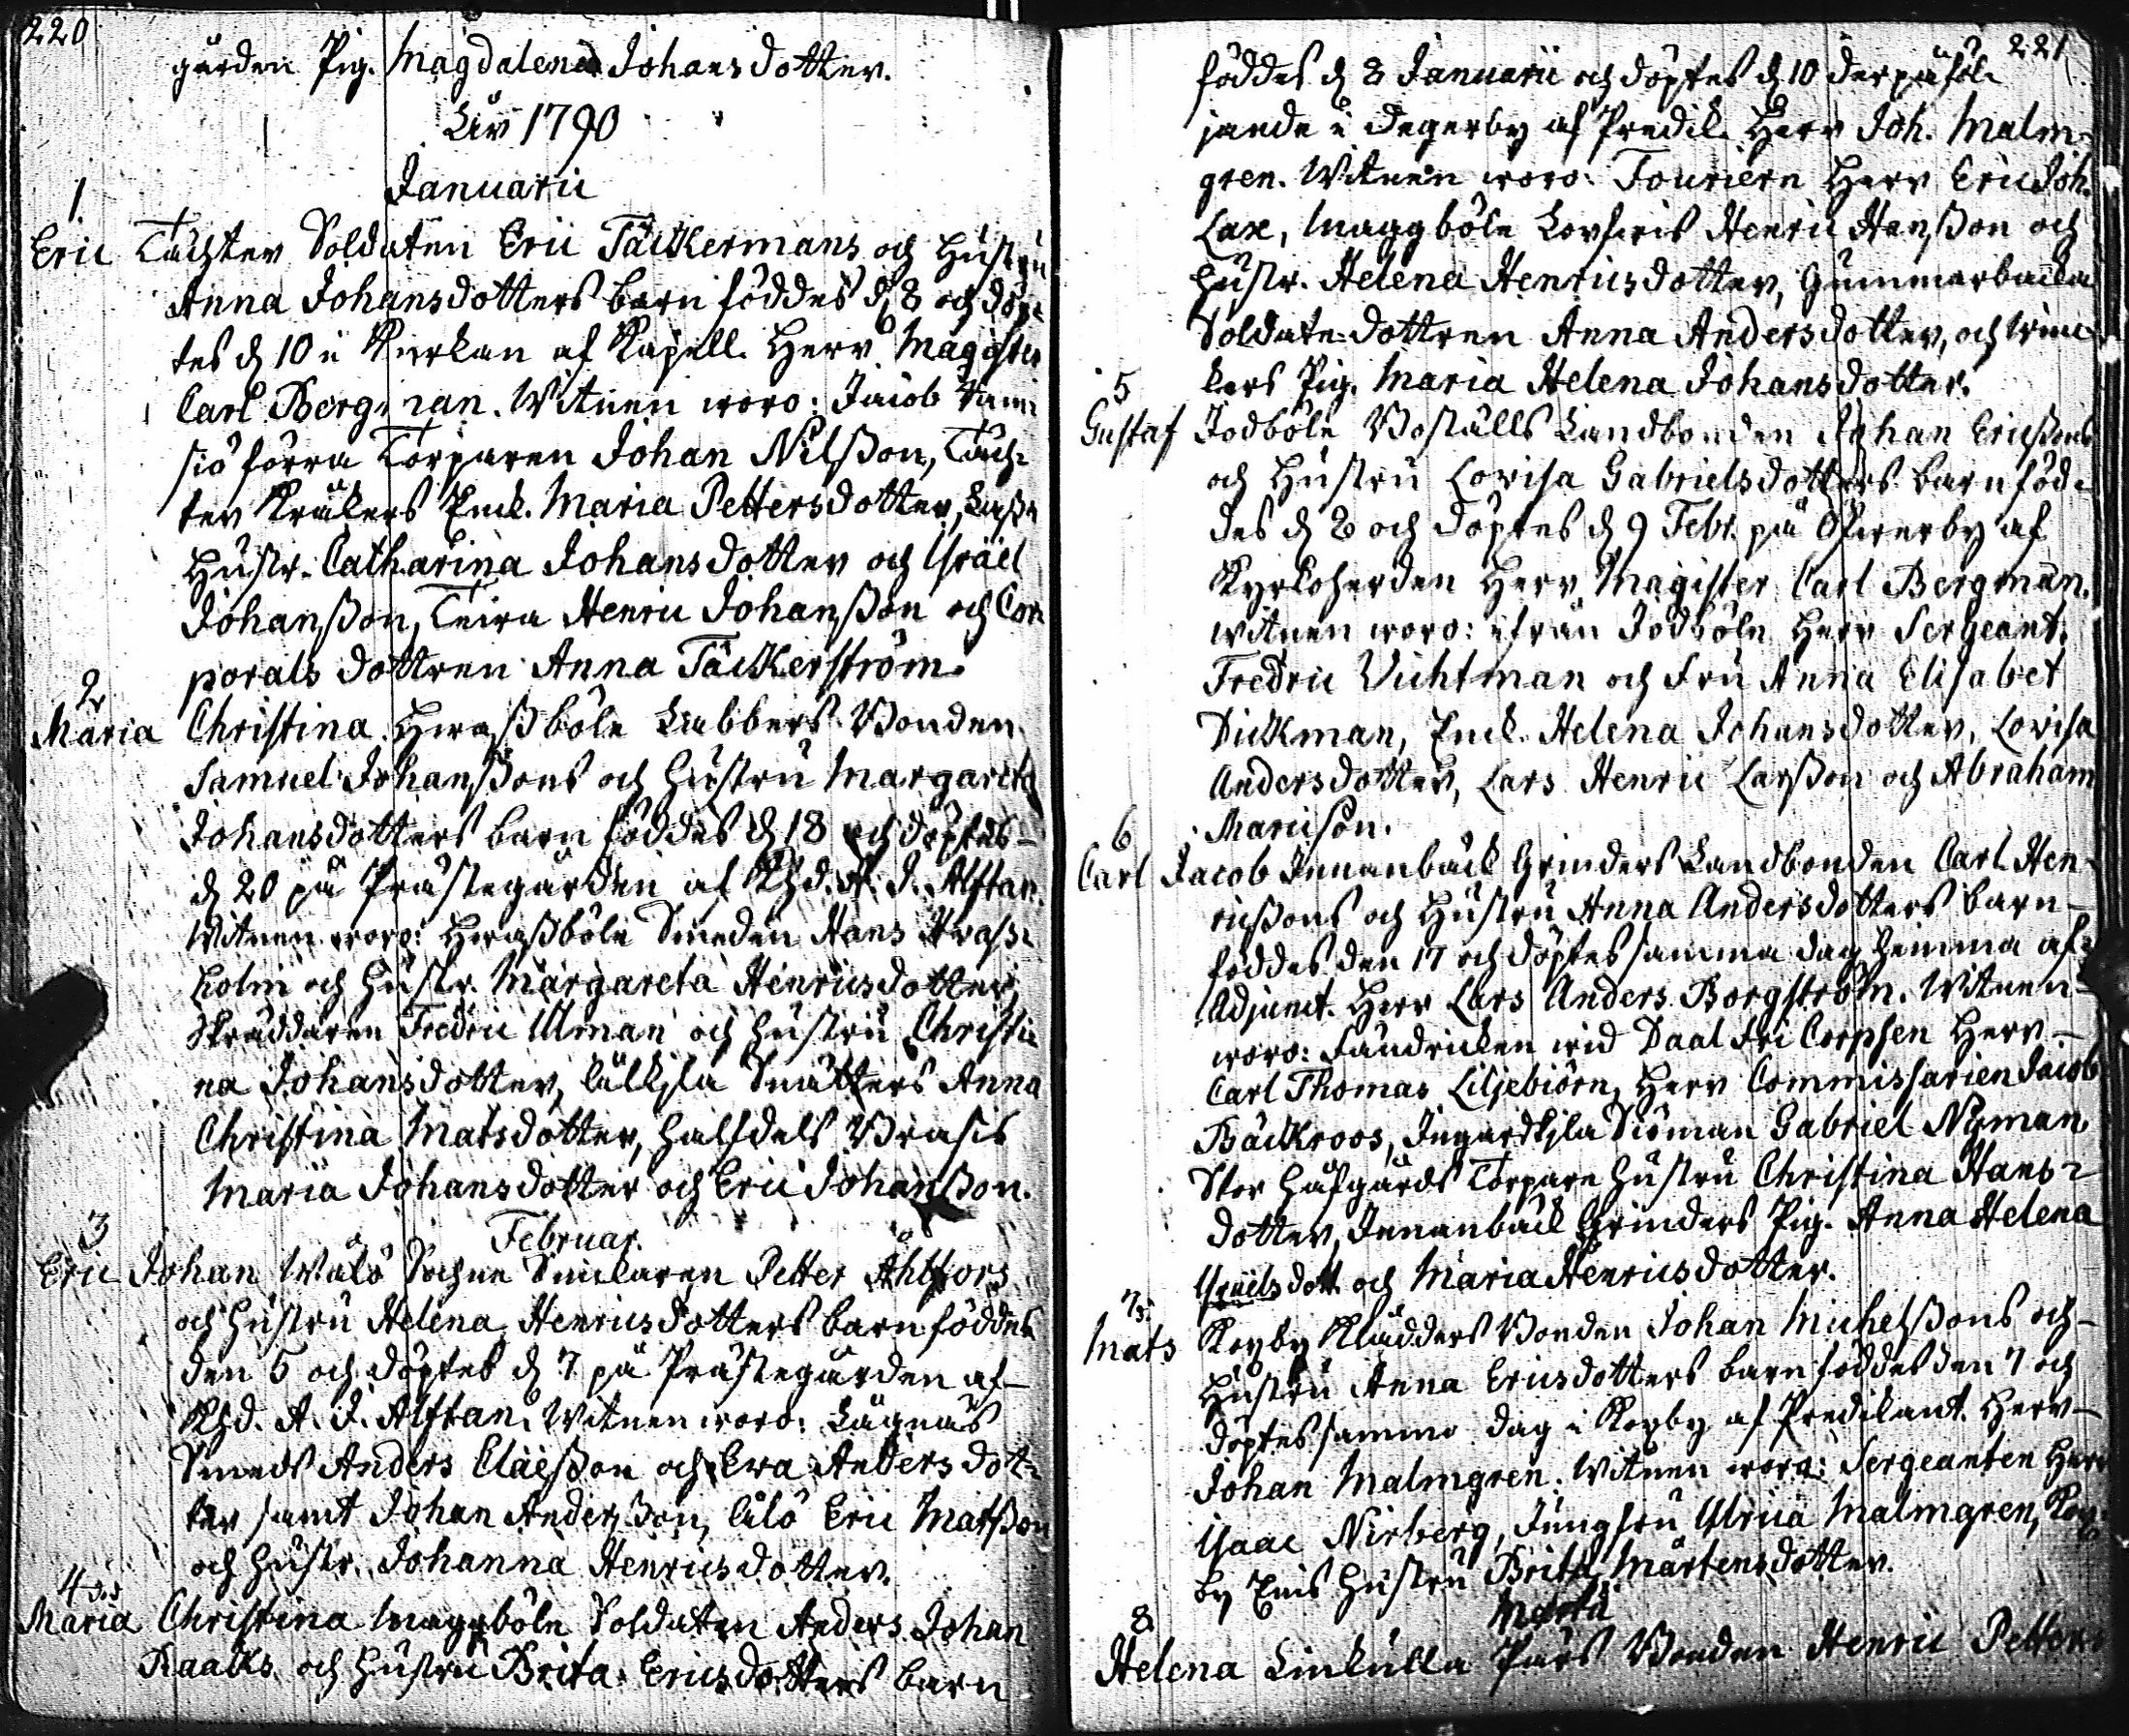 220
gården Pig. Magdalena Johans dotter.
Åir 1790
Januarii
1.
Eric Tächter Soldaten Eric Täckermans och Hustru
Anna Johansdotters barn föddes d 8 och döp-
tes d 10 i Kyrkan af Kapell. Herr Magister
Carl Bergman. Witnen woro: Jacob
siö förra Torparen Johan Nilsson, Täch-
ter Kräkers Enk. Maria Pettersdotter,
Hustr. Catharina Johansdotter och Israël
Johansson, Teira Henric Johansson och Cor-
porals dottren Anna Täckerström.
2
Maria Christina Hwassböle Lubbers Bonden
Samuel Johanssons och hustru Margareta
Johansdotters barn föddes d 18 och döptes
d 20 på Prästegården af Khd. A. J. Alftan.
Witnen woro: Hwassböle Smeden Hans Hwass-
holm och Hustr. Margareta Henricsdotter,
Skräddaren Fredric Ulman och hustru Christi-
na Johansdotter, Källkjla Smatters Anna
Christina Matsdotter, Halfdels Brasis
Maria Johansdotter och Eric Johansson.
Februar.
3
Eric Johan Walö Sochne Snickaren Petter Åhlfors
och hustru Helena Henricsdotters barn föddes
den 5 och döptes d 7 på Prästegården af
Khd. A. J. Alftan. Witnen woro: Lagnäs
Smeds Anders Claësson och Ewa Anders dot-
ter samt Johan Andersson, Eric Matsson
och hustr. Johanna Henricsdotter.
4
Maria Christina Maggböle Soldaten Anders Johan
Raaks och hustru Brita Ericsdotters barn
221
föddes d 8 Januarii och döptes d 10 derpåföl-
jande i Degerby af Predik. Herr Joh. Malm-
gren. Witnen woro: Fouriern Herr Eric Joh.
Lax, Maggböle Korfwis Henric Hansson och
hustr. Helena Henricsdotter, Gummarbacka
Soldate-dottren Anna Andersdotter, och Win-
kers Pig. Maria Helena Johansdotter.
5
Gustaf Jodböle Boställs Landbonden Johan Ericssons
och Hustru Lovisa Gabrielsdotters barn föd-
des d 8 och döptes d 9 Febr. på Öfwerby af
Kyrkoherden Herr Magister Carl Bergman.
Witnen woro: ifrån Jodböle Herr Sergeant.
Fredric Wichtman och Fru Anna Elisabet
Dickman, Enk. Helena Johansdotter, Lovisa
Andersdotter, Lars Henric Larsson och Abraham
Marcison.
6
Carl Jacob Innanbäck Grinders Landbonden Carl Hen-
ricssons och Hustru Anna Andersdotters barn
föddes den 17 och döptes samma dag hemma af
Adjunct. Herr Lars Anders Borgström. Witnen
woro: Fändricken wid Daal fri Corpsen Herr
Carl Thomas Liljebiörn, Herr Commissarien Jacob
Bäckroos, Ingardskjla Siöman Gabriel Nyman,
Stor Hafgårds Torpare Hustru Christina Hans-
dotter, Innanbäck Grinders Pig. Anna Helena
Israëlsdott och Maria Henricsdotter.
7
Mats Koxby Klädders Bonden Johan Michelssons och
Hustru Anna Ericsdotters barn föddes den 7 och
döptes samma dag i Koxby af Predikant. Herr
Johan Malmgren. Witnen woro: Sergeanten Herr
Isaac Nirberg, Jungfru Ulrica Malmgren, Kox-
by Enis Hustru Brita Mårtensdotter.
Martii
8
Helena Linkulla Pärs Bonden Henric Petters